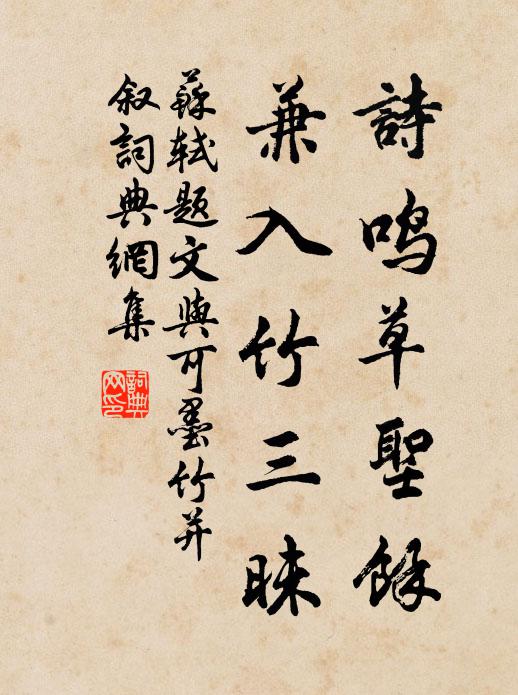 詩鸣草聖餘
兼入竹三昧
蘇軾题文與可墨竹并
叙詞典網集
詞典网印